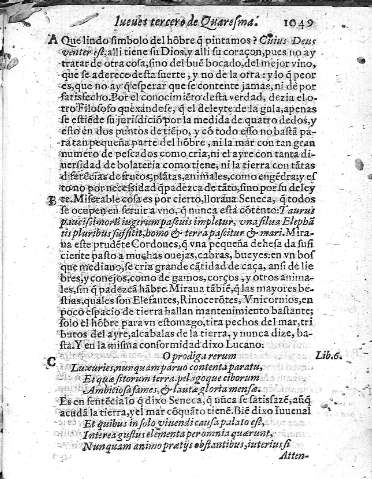 Iueues tercero de Quaresma. 1049
A Que lindo simbolo del hõbre q̃ pintamos? Cuius Deus
venter est, alli tiene su Dios, y alli su coraçon, pues no ay
tratar de otra cosa, sino del bué bocado, del mejor vino,
que se adereco desta suerte, y no de la otra: y lo q̃ peor
es, que no ay q̃ esperar que se contente jamas, ni dé por
satisfecho. Por el conocimiẽto desta verdad, dezia el o-
tro Filosofo quexandose, q̃ el deleyte de la gula, apenas
se estiẽde su jurisdiciõ por la medida de quatro dedos, y
esto en dos puntos de tiẽpo, y cõ todo esso no bastã pa-
ra tan pequeña parte del hõbre, ni la mar con tan gran
numero de pescados como cria, ni el ayre con tanta di-
uersidad de bolateria como tiene, ni la tierra con tãtas
diferẽcias de frutos, plãtas, animales, como engẽdra; y es
to no por necessidad q̃ padezca de tãto, sino por su deley
B te. Miserable cosa es por cierto, lloraua Seneca, q̃ todos
se ocupen en seruir a vno, q̃ nunca està cõtento: Tauri
paucissimorũ iugerum pascuis impletur, vna silua Elephã
tis pluribus sufficit, homo & terra pascitur & mari. Mira-
ua este prudẽte Cordoues, q̃ vna pequeña dehesa da sufi
ciente pasto a muchas ouejas, cabras, bueyes: en vn bos
que mediano, se cria grande cãtidad de caça, ansi de lie
bres, y conejos, como de gamos, corços, y otros anima-
les, sin q̃ padezcã hãbre. Miraua tãbiẽ, q̃ las mayores be-
stias, quales son Elefantes, Rinocerõtes, Vnicornios, en
poco espacio de tierra hallan mantenimiento bastante;
solo el hõbre para vn estomago, tira pechos del mar, tri
butos del ayre, alcabalas de la tierra, y nunca dize, ba-
sta. Y en la misma conformidad dixo Lucano:
C O prodiga rerum Lib. 6.
Luxuries, nunquam paruo contenta paratu,
Et quæsitorum terra, pelagoque ciborum
Ambitiosa fames, & lautæ gloria mensæ.
Es en sentẽcia lo q̃ dixo Seneca, q̃ nunca se satisfaze, aũq̃
acuda la tierra, y el mar cõ quãto tiene. Biẽ dixo Iuuenal
Et quibus in solo viuendi causa palato est,
Interea gustus elementa per omnia quærunt,
Nunquam animo prætijs obstantibus, interius si
Atten-